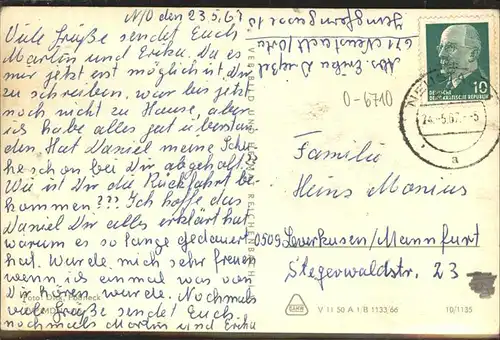 N/O den 23.5.67
Viele Grüße sendet Euch
Martin und Erika. Da es
mir jetzt erst möglich ist Dir
zu schreiben, war bis jetzt
noch nicht zu Hause, aber
ich habe alles gut überstan
den. Hat Daniel meine Schu
he schon bei Dir abgeholt??
Wie ist Dir die Rückfahrt be
kommen??? Ich hoffe das
Daniel Dir alles erklärt hat
warum es so lange gedauert
hat. Würde mich sehr freuen
wenn ich einmal was von
Dir hören würde. Nochmals
viele Grüße sendet Euch
nochmals Martin und Erika
Abs. Erika
671 Neustadt/Orla
10
DEUTSCHE
DEMOKRATISCHE REPUBLIK
10
24.-5.67.
a
O-6710
Familie
Heins Monius
0509 Leverkusen/Mannfurt
Stegerwaldstr. 23
Foto: Dick, Pößneck
V 11 50 A 1/B 1133/66
10/1135